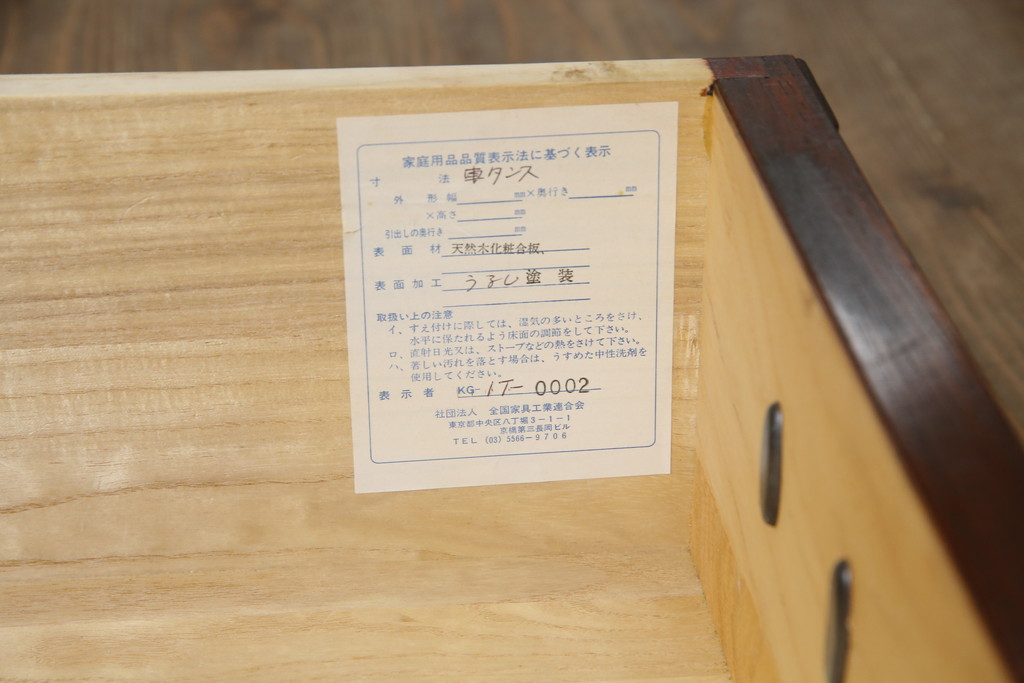 家庭用品品質表示法に基づく表示
寸法 車タンス
外形幅 mm×奥行き mm
×高さ mm
引出しの奥行き mm
表面材 天然木化粧合板、
表面加工 うるし塗装
取扱い上の注意
イ、すえ付けに際しては、湿気の多いところをさけ、
水平に保たれるよう床面の調節をして下さい。
ロ、直射日光又は、ストーブなどの熱をさけて下さい。
ハ、著しい汚れを落とす場合は、うすめた中性洗剤を
使用してください。
表示者 KG-1T-0002
社団法人 全国家具工業連合会
東京都中央区八丁堀3-1-1
京橋第三長岡ビル
TEL (03) 5566-9706